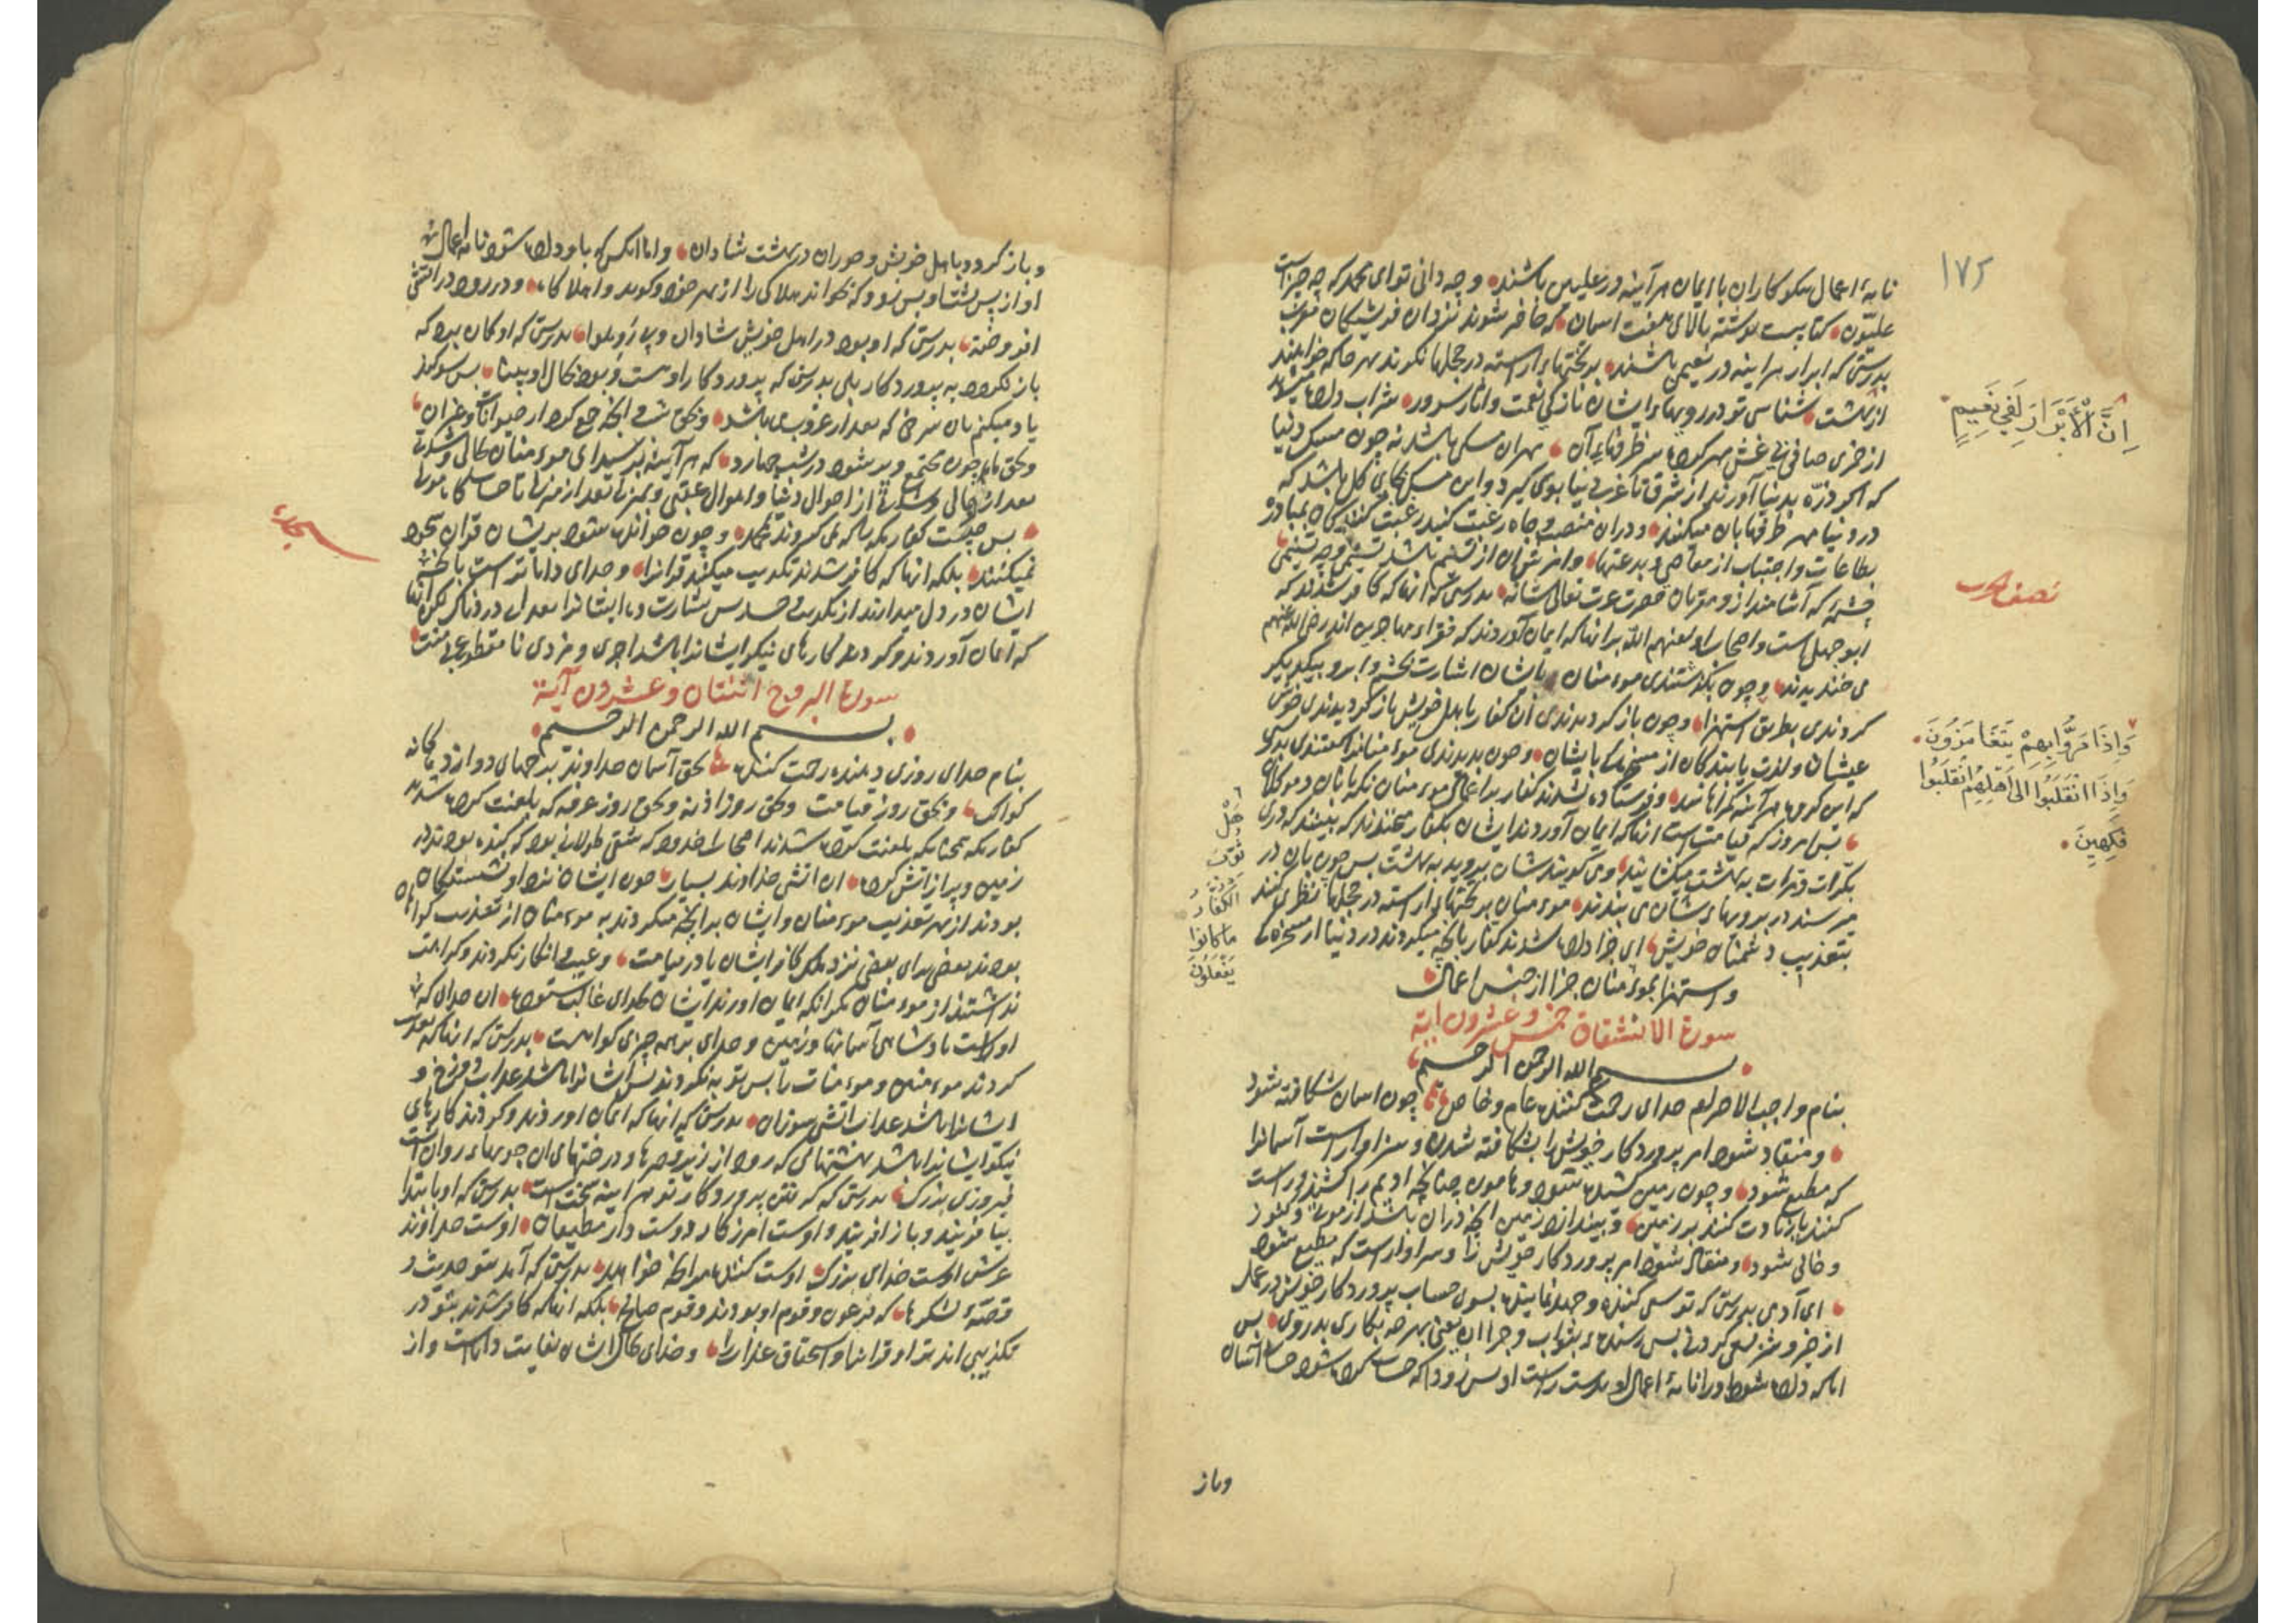 ۱۷۵
نامهٔ اعمال نیکوکاران با ایمان هر آینه در علیین باشند و چه دانی تو ای محمد که چه چیز است
علیّون کتابیست نوشته بالای هفت اسمان که حاضر شوند نزد ان فریشتکان مقرب
بدرستی که ابرار هر اینه در نعیمی باشند بر تختهاء اراسته در حجلها نکرند بهر جا که خواهند
از بهشت شناسی تو در رویهاء ایشان تازکی نعمت و اثار سرور شراب داده میشوند
از خمری صافی بی غش مهر کرده سر ظرفهاء آن مهر ان مسکی باشد نه چون مسک دنیا
که اکر ذرّه بدنیا آورند از شرق تا غرب دنیا بوی کیرد و این مسک بجای کل باشد که
در دنیا مهر ظرفها بان میکنند و در ان منصب و جاه رغبت کنید رغبت کنندکان بمبادرت
بطاعات و اجتناب از معاصی و بدعتها و امزش ان از تسنیم باشد تسنیمی و چه تسنیمی
چشمه که آشامند از و مقربان حضرت عزت تعالی شانه بدرستی که انها که کافر شدند که
ابو جهل است و اصحاب او لعنهم الله بر انها که ایمان آوردند که فقراء مهاجرین اند رضی الله عنهم
می خندیدند و چون بکذشتندی موءمنان بایشان اشارت بچشم و ابرو بیکدیکر
کردندی بطریق استهزا و چون باز کردیدندی ان کفار باهل خویش باز کردیدندی خوش
عیشان و لذت یابندکان از مسخرکی بایشان و چون بدیدندی موءمنانرا کفتندی بدرستی
که این کروه هر آینه کمراهانند و فرستاده نشدند کفار بر اعمال موءمنان نکهبانان و موکلان
بس امروز که قیامت است انها که ایمان آوردند ایشان بکفار بخندند که بینند که دری
بکرات و مرات به بهشت میکشایند و می کویند شان بروید به بهشت بس چون بان در
میرسند در بر رویهاء شان می بندند موءمنان بر تختهاء اراسته در حجلها نظر می کنند
بتعذیب دشمنان خویش ای جزا داده شدند کفار بانچه میکردند در دنیا از مسخره کی
و استهزا بموءمنان جزا از جنس اعمال
سورة الانشقاق خمس و عشرون آیة
بسم الله الرحمن الرحیم
بنام واجب الاحترام خدای رحمت کننده عام و خاص چون اسمان شکافته شود
و منقاد شود امر پروردکار خویش را بشکافته شدن و سزاوار است آسمانرا
که مطیع شود و چون زمین کشیده شود و هامون چنانچه ادیم را کشند و راست
کنند تا زیادت کنند بر زمین و بیندازد زمین انچه در ان باشد از موتی و کنوز
و خالی شود و منقاد شود امر پروردکار خویش را و سزاوار است که مطیع شود
ای آدمی بدرستی که تو سعی کننده و جهد نماینده بسوی حساب پروردکار خویش در عمل
از خیر و شر سعی کردنی بس رسنده بثواب و جزا ان یعنی هر چه بکاری بدروی بس
اما که داده شود ورا نامهٔ اعمال او بدست راست او بس زود که حساب کرده شود حساب آسان
وباز
إِنَّ الْأَبْرَارَ لَفِي نَعِيمٍ
نصف الحزب
وَإِذَا مَرُّوا بِهِمْ يَتَغَامَزُونَ
وَإِذَا انْقَلَبُوا إِلَى أَهْلِهِمُ انْقَلَبُوا
فَكِهِينَ
هَلْ
ثُوِّبَ
الْكُفَّارُ
مَا كَانُوا
يَفْعَلُونَ
و باز کردد باهل خویش و حوران در بهشت شادان و اما انکس که باو داده شود نامه اعمالش
او از پس پشت او بس زود که بخواند هلاکی را از بهر خود و کوید واهلاکاه و در رود در اتشی
افروخته بدرستی که او بود در اهل خویش شادان بدرستی که او کمان برد که
باز نکردد به پروردکار بلی بدرستی که پروردکار او هست و بود بحال او بینا بس سوکند
یاد میکنم بان سرخی که بعد از غروب می باشد و بحق شب و انچه جمع کرد از حیوانات و غیر ان
و بحق ماه چون مجتمع و پر شود در شب چهارده که هر آینه برسید ای موءمنان بحالی و شدتی
بعد از حالی و شدتی از احوال دنیا و اهوال عقبی و بمنزلی بعد از منزلی تا حساب کاه
بس چیست کفار مکه را که نمی کروند بمحمد و چون خوانده شود بر ایشان قران سجود
نمیکنند بلکه انها که کافر شدند تکذیب میکنند قرانرا و خدای داناتر است بانچه
ایشان در دل میدارند از تکذیب و حسد بس بشارت ده ایشانرا بعذاب دردناک لکن انها
که ایمان آوردند و کردند کارهای نیکو ایشانرا باشد اجری و مزدی نا مقطوع بی منت
سورة البروج اثنتان وعشرون آیة
بسم الله الرحمن الرحیم
بنام خدای روزی دهنده رحمت کننده بحق آسمان خداوند برجهای دوازده کانه
کواکب و بحق روز قیامت و بحق روز اذینه و بحق روز عرفه که بلعنت کرده شدند
کفار مکه همچنانکه بلعنت کرده شدند اصحاب اخدود که شقی طولانی بود که کنده بودند در
زمین و پر از اتش کرده ان اتش خداوند بسیار چون ایشان نزد او نشستکان
بودند از بهر تعذیب موءمنان و ایشان بر انچه میکردند به موءمنان از تعذیب کواهان
بودند بعضی برای بعضی نزد ملک کافر ایشان یا در قیامت و عیب و انکار نکردند و کراهت
نداشتند از موءمنان مکر انکه ایمان اورند ایشان بخدای غالب ستوده ان خدای که
او راست پادشاهی آسمانها و زمین و خدای بر همه چیزی کواهست بدرستی که انها که تعذیب
کردند موءمنین و موءمنات را بس توبه نکردند بس ایشانرا باشد عذاب دوزخ و
ایشانرا باشد عذاب اتش سوزان بدرستی که انها که ایمان اورند و کردند کارهای
نیکو ایشانرا باشد بهشتهائی که رود از زیر قصرها و درختهای ان جویهاء روان اینست
فیروزی بزرک بدرستی که کرفتن پروردکار تو هر آینه سخت است بدرستی که او بابتدا
بیافریند و باز افریند و اوست امرزکار و دوست دار مطیعان اوست خداوند
عرش اوست خدای بزرک اوست کننده هر انچه خواهد بدرستی که آمد بتو حدیث و
قصهٔ لشکرها که فرعون و قوم او بودند و قوم صالح بلکه انها که کافر شدند بتو در
تکذیبی اند ترا و قرانرا و استحقاق عذاب را و خدای بحال ایشان بغایت داناست و از
السجدة